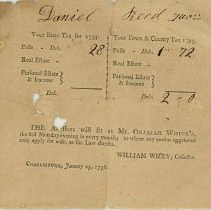 Daniel Reed
Your State Tax for 1795. Your Town & County Tax 1795.
Polls - Dols. 28 Polls - Dols. 1 72
Real Estate Real Estate
Personal Estate } Personal Estate }
& Income & Income
Dols. Dols. 2-0
THE Assessors will sit at Mr. OBADIAH WHITE's,
the last Monday evening in every month; to whom any person aggrieved
may apply for ease, as the Law directs.
WILLIAM WILEY, Collector.
CHARLESTOWN, January 19, 1796.